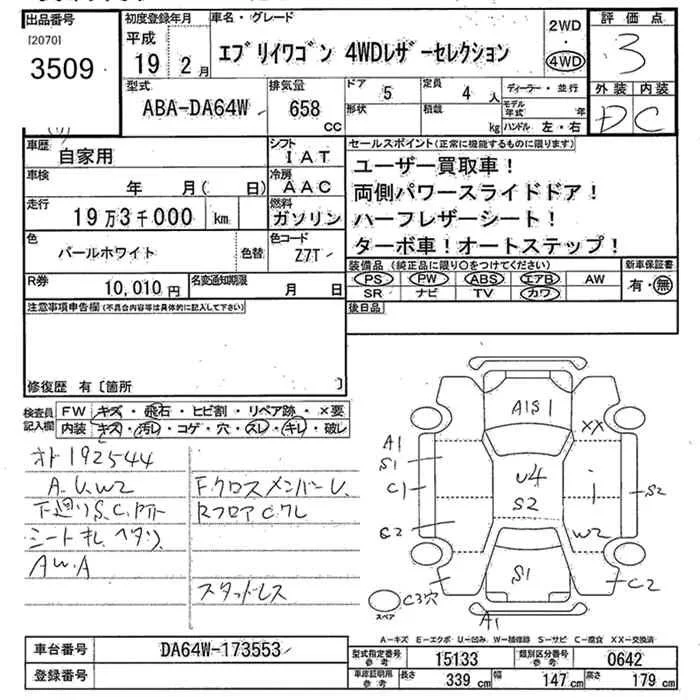 出品番号
[2070]
3509
初度登録年月
平成
19 2月
車名・グレード
エブリイワゴン 4WDレザーセレクション
2WD
・
4WD
評価点
3
外装 内装
D C
型式
ABA-DA64W
排気量
658
CC
ドア
5
定員
4 人
形状
積載
kg
ディーラー・並行
モデル年式 年
ハンドル 左・右
車歴
自家用
シフト
IAT
車検
年 月( 日)
冷房
AAC
走行
19万3千000 km
燃料
ガソリン
色
パールホワイト
色替
色コード
Z7T
R券
10,010 円
名変通知期限
月 日
セールスポイント(正常に機能するものに限ります)
ユーザー買取車!
両側パワースライドドア!
ハーフレザーシート!
ターボ車!オートステップ!
装備品(純正品に限り○をつけてください)
PS PW ABS エアB AW
SR ナビ TV カワ
新車保証書
有・無
後日品
注意事項申告欄(不具合内容等は具体的に記入して下さい)
修復歴 有〔箇所 〕
検査員
記入欄
FW キズ・飛石・ヒビ割・リペア跡・×要
内装 キズ・汚レ・コゲ・穴・スレ・キレ・破レ
オド192544
A.U.W2
下廻りS.C.
シートキレ
AW.A
F.クロスメンバーU.
RフロアC.クレ
スタッドレス
A1S1
XX
A1
S1
C1
U4
S2
i
S2
W2
S1
C2
C3穴
A1
スペア
A-キズ E-エクボ U-凹み W-補修跡 S-サビ C-腐食 XX-交換済
車台番号
DA64W-173553
登録番号
型式指定番号
参考
15133
類別区分番号
参考
0642
車庫証明用
参考
長さ 339 cm
幅 147 cm
高さ 179 cm